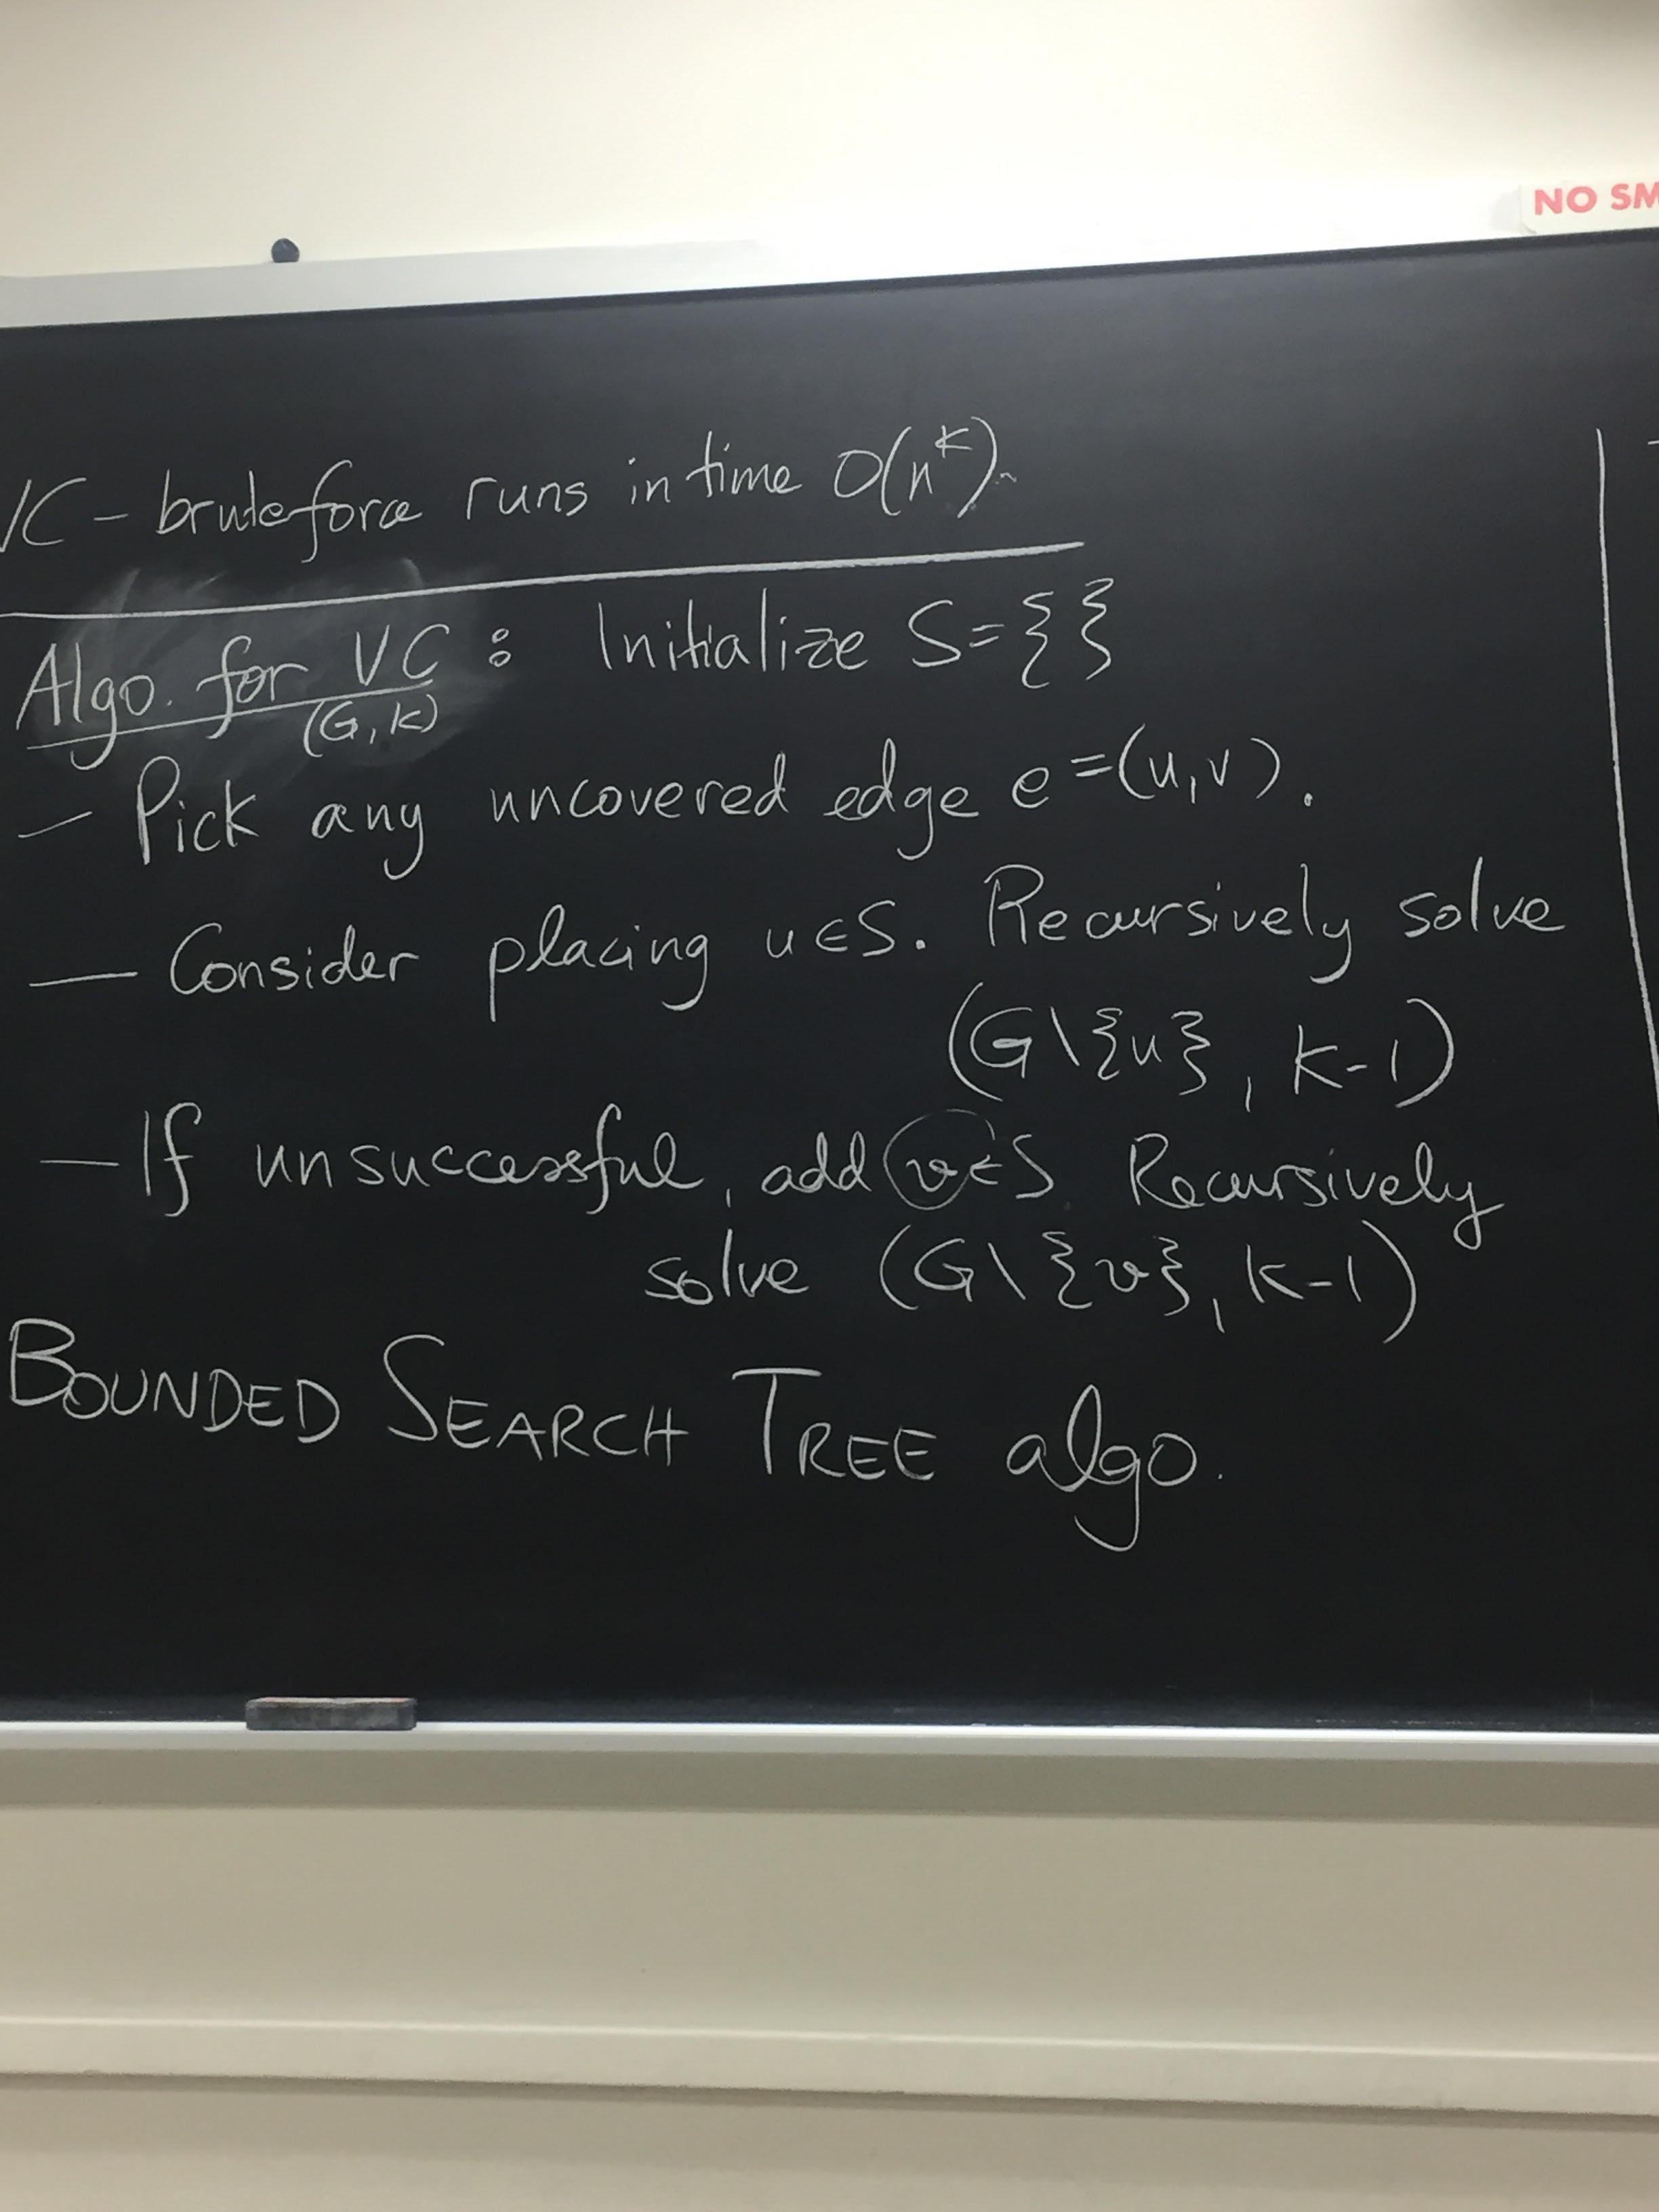 NO SM
VC - bruteforce runs in time O(n^k).
Algo. for VC : Initialize S={}
(G, k)
- Pick any uncovered edge e=(u,v).
- Consider placing u∈S. Recursively solve
(G\{u}, k-1)
- If unsuccessful, add v∈S. Recursively
solve (G\{v}, k-1)
BOUNDED SEARCH TREE algo.